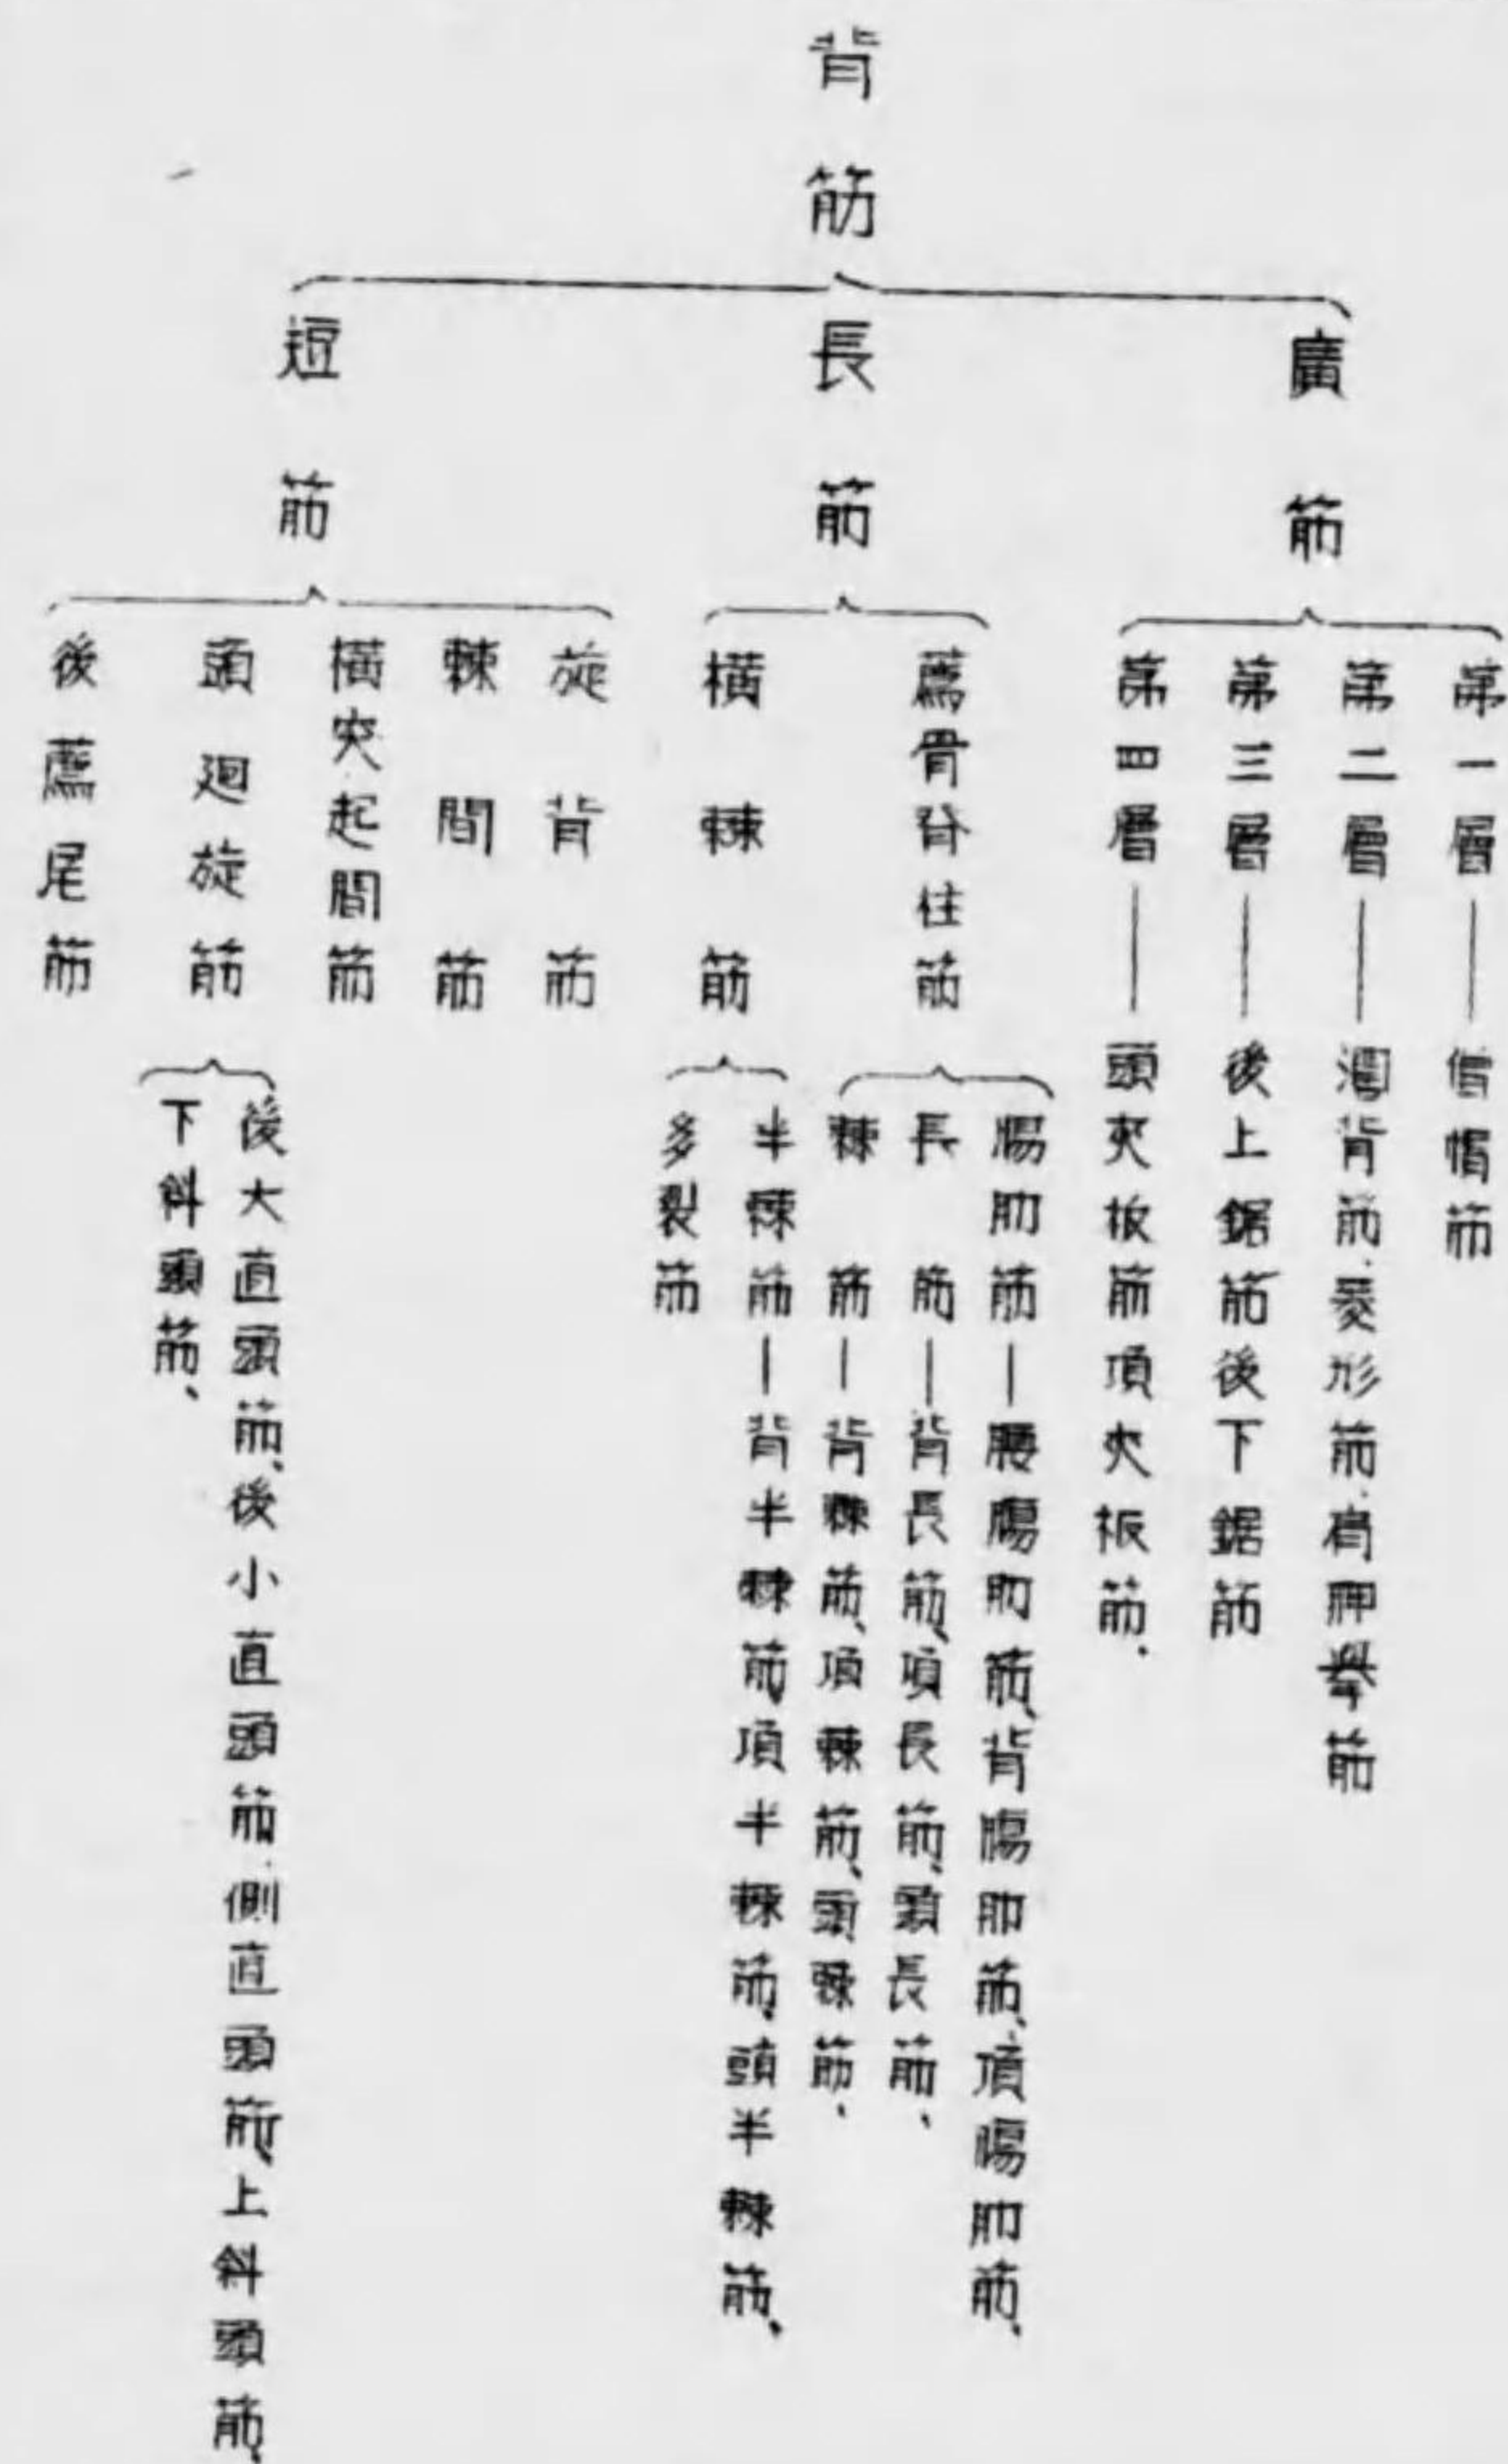 背筋
廣筋
第一層―僧帽筋
第二層―濶背筋、菱形筋、肩胛擧筋
第三層―後上鋸筋後下鋸筋
第四層―頭夾板筋項夾板筋、
長筋
薦骨脊柱筋
腸肋筋―腰腸肋筋、背腸肋筋、項腸肋筋、
長筋―背長筋、項長筋、頭長筋、
棘筋―背棘筋、項棘筋、頭棘筋、
横棘筋
半棘筋―背半棘筋、項半棘筋、頭半棘筋、
多裂筋
短筋
旋背筋
棘間筋
横突起間筋
頭廻旋筋
後大直頭筋、後小直頭筋、側直頭筋、上斜頭筋、
下斜頭筋、
後薦尾筋